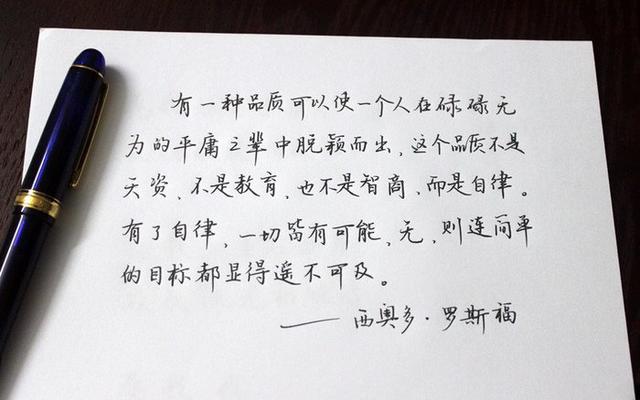 有一种品质可以使一个人在碌碌无
为的平庸之辈中脱颖而出，这个品质不是
天资、不是教育，也不是智商、而是自律。
有了自律，一切皆有可能，无，则连简单
的目标都显得遥不可及。
——西奥多·罗斯福